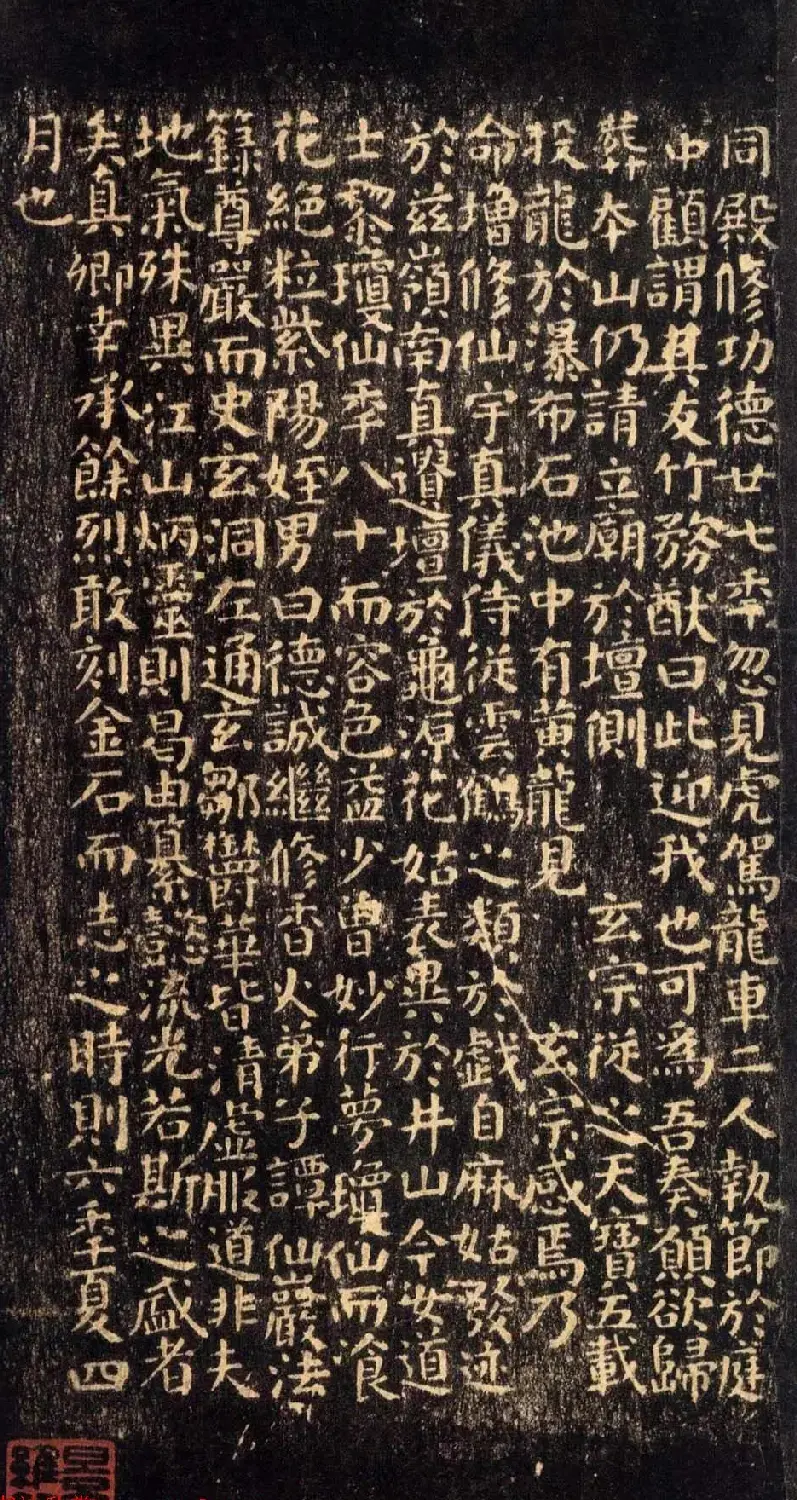 同殿修功德廿七季忽見虎駕龍車二人執節於庭
中顧謂其友竹務猷曰此迎我也可為吾奏願欲歸
葬本山仍請立廟於壇側 玄宗從之天寶五載
投龍於瀑布石池中有黃龍見 玄宗感焉乃
命增修仙宇真儀侍從雲鶴之類於戲自麻姑發迹
於茲嶺南真遺壇於龜源花姑表異於井山今女道
士黎瓊仙季八十而容色益少曾妙行夢瓊仙而飡
花絕粒紫陽姪男曰德誠繼修香火弟子譚仙巖法
籙尊嚴而史玄洞左通玄鄒鬱華皆清虛服道非夫
地氣殊異江山炳靈則曷由纂懿流光若斯之盛者
矣真卿幸承餘烈敢刻金石而志之時則六季夏四
月也